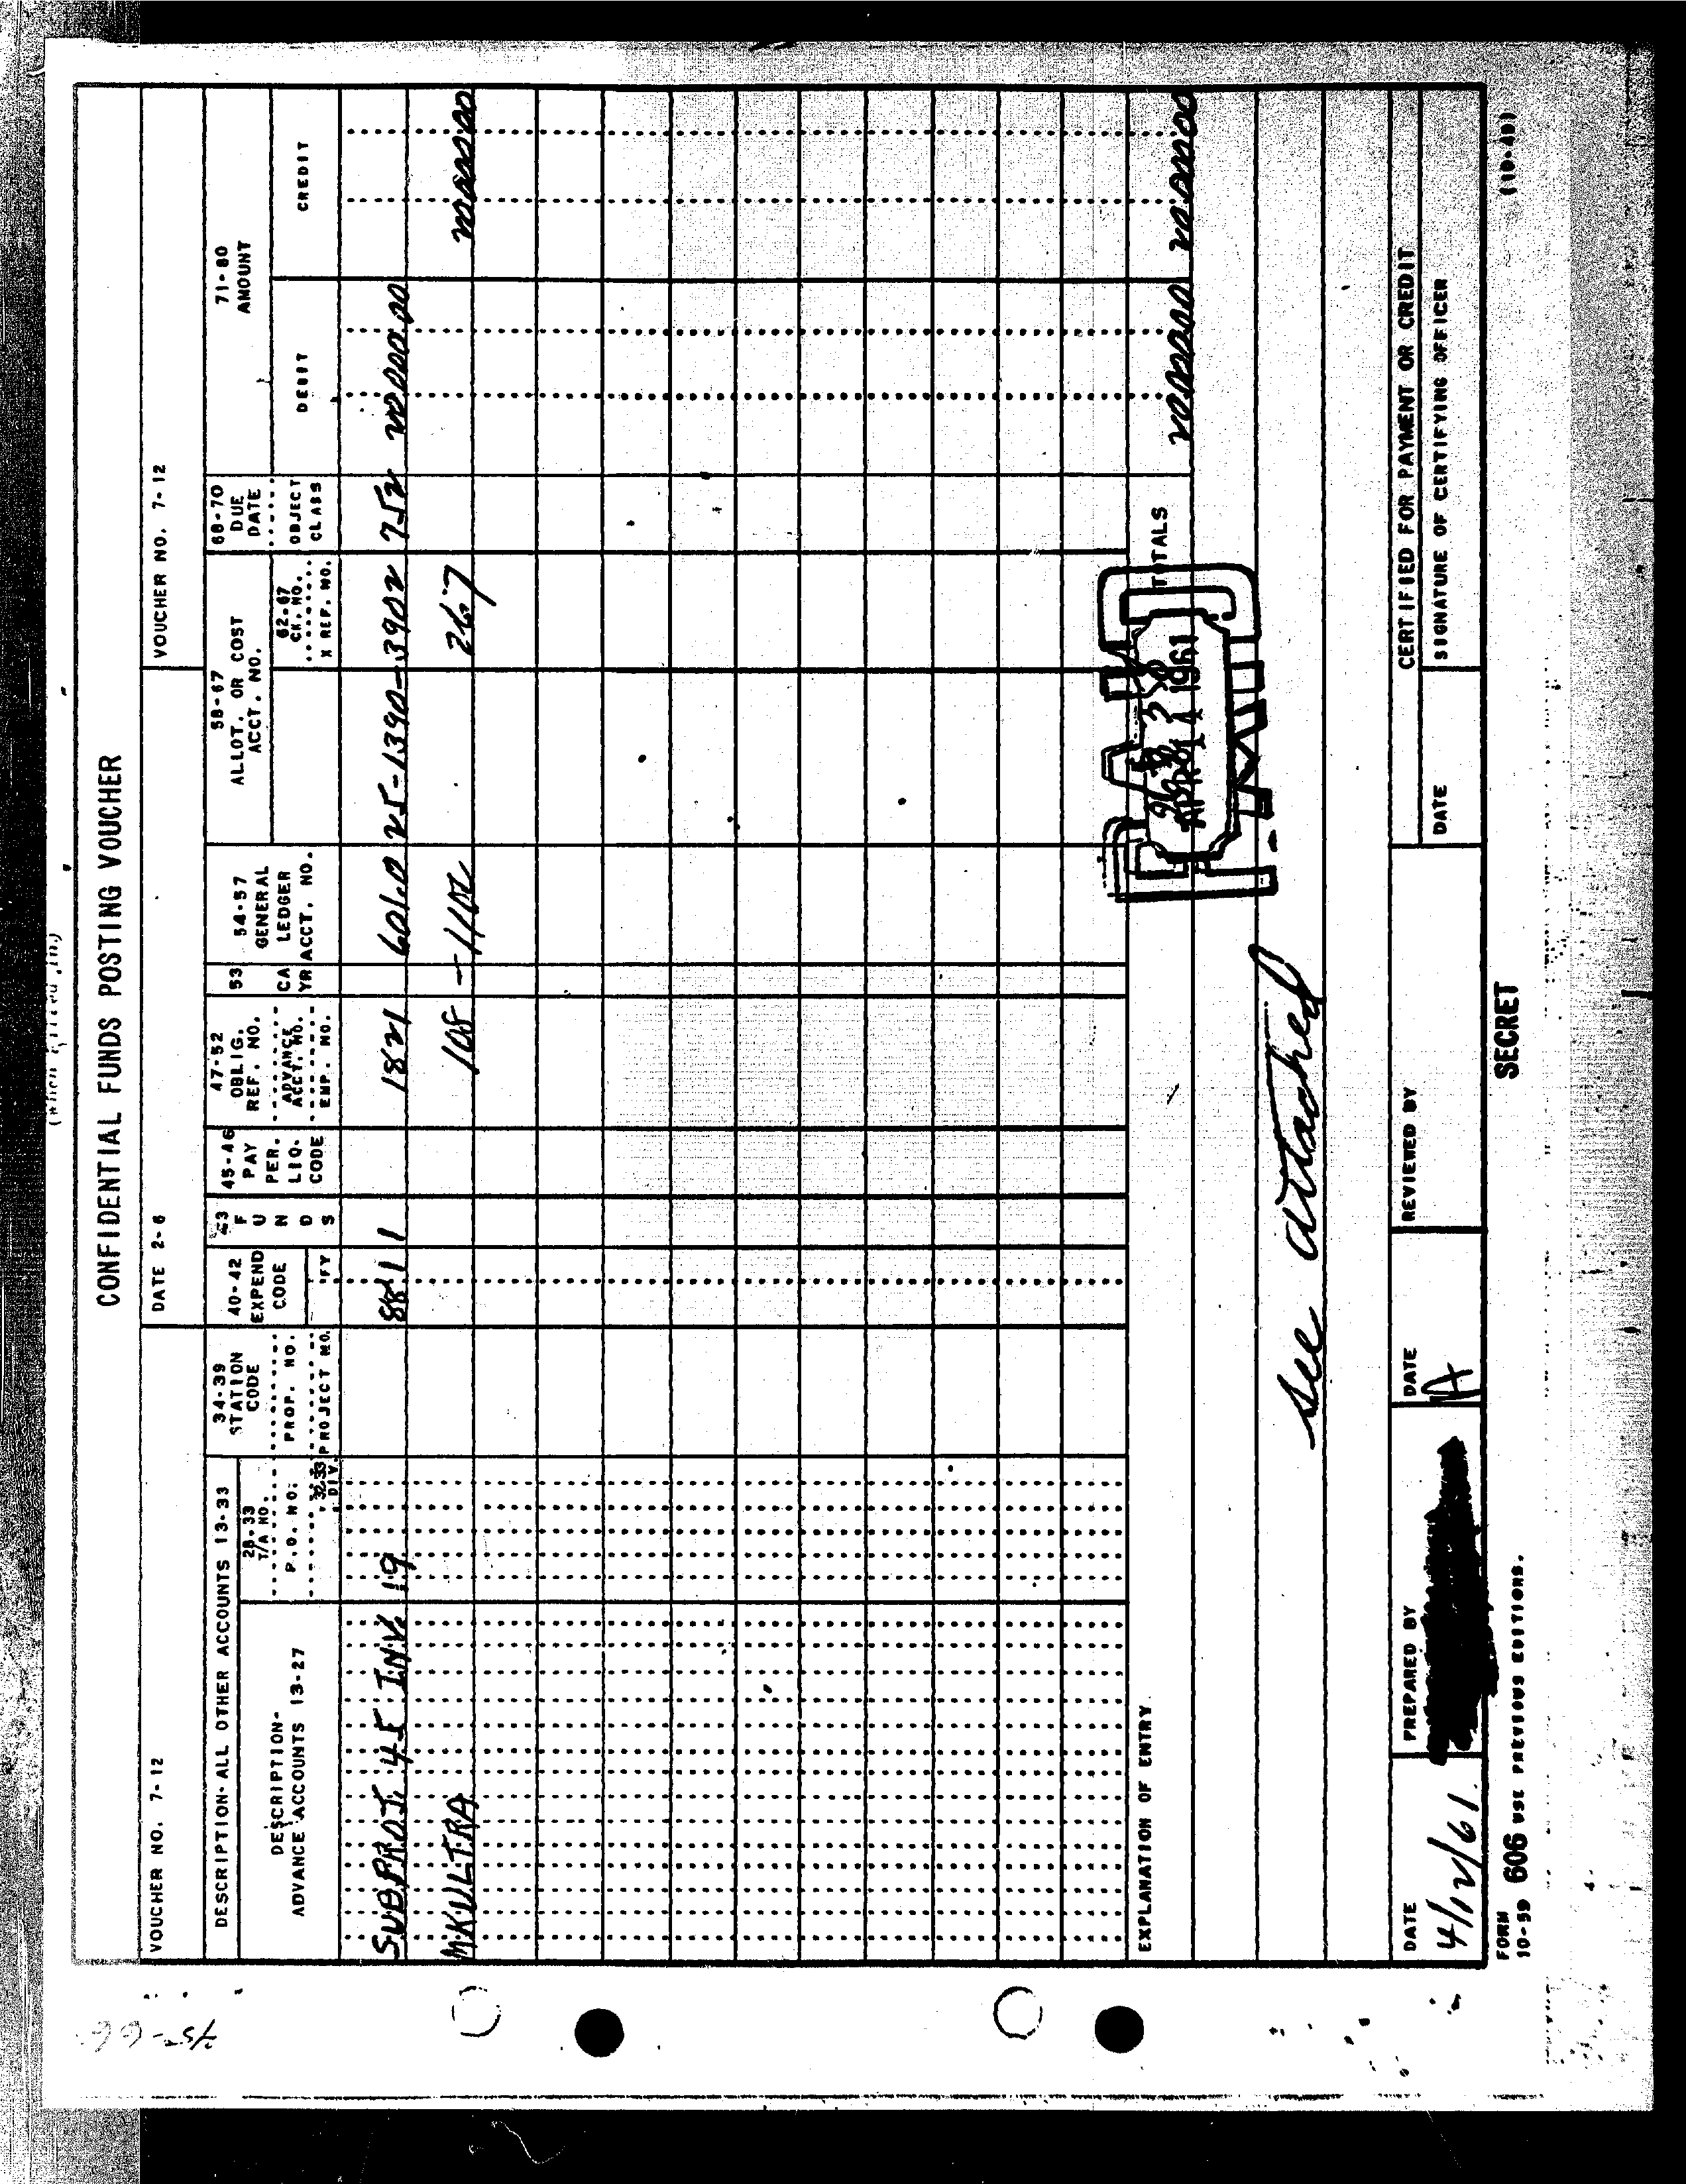 CONFIDENTIAL FUNDS POSTING VOUCHER
VOUCHER NO. 7-12
DATE 2-6
VOUCHER NO. 7-12
DESCRIPTION-ALL OTHER ACCOUNTS 13-33
DESCRIPTION-
ADVANCE ACCOUNTS 13-27
28-33
T/A NO.
P.O. NO.
32-33
DIV.
34-39
STATION
CODE
PROP. NO.
PROJECT NO.
40-42
EXPEND
CODE
FY
43
F
U
N
D
S
45-46
PAY
PER.
LIQ.
CODE
47-52
OBLIG.
REF. NO.
ADVANCE
ACCT. NO.
EMP. NO.
53
CA
YR
54-57
GENERAL
LEDGER
ACCT. NO.
58-67
ALLOT. OR COST
ACCT. NO.
62-67
CK. NO.
X REF. NO.
68-70
DUE
DATE
OBJECT
CLASS
71-80
AMOUNT
DEBIT
CREDIT
SUBPROJ. 45 INV. 19 881 1 1821 601.0 25-1390-3902 752
MKULTRA 108 267
EXPLANATION OF ENTRY
TOTALS
APR 14 1961
See attached
DATE
4/12/61
PREPARED BY
DATE
REVIEWED BY
CERTIFIED FOR PAYMENT OR CREDIT
DATE
SIGNATURE OF CERTIFYING OFFICER
FORM
10-59 606 USE PREVIOUS EDITIONS.
SECRET